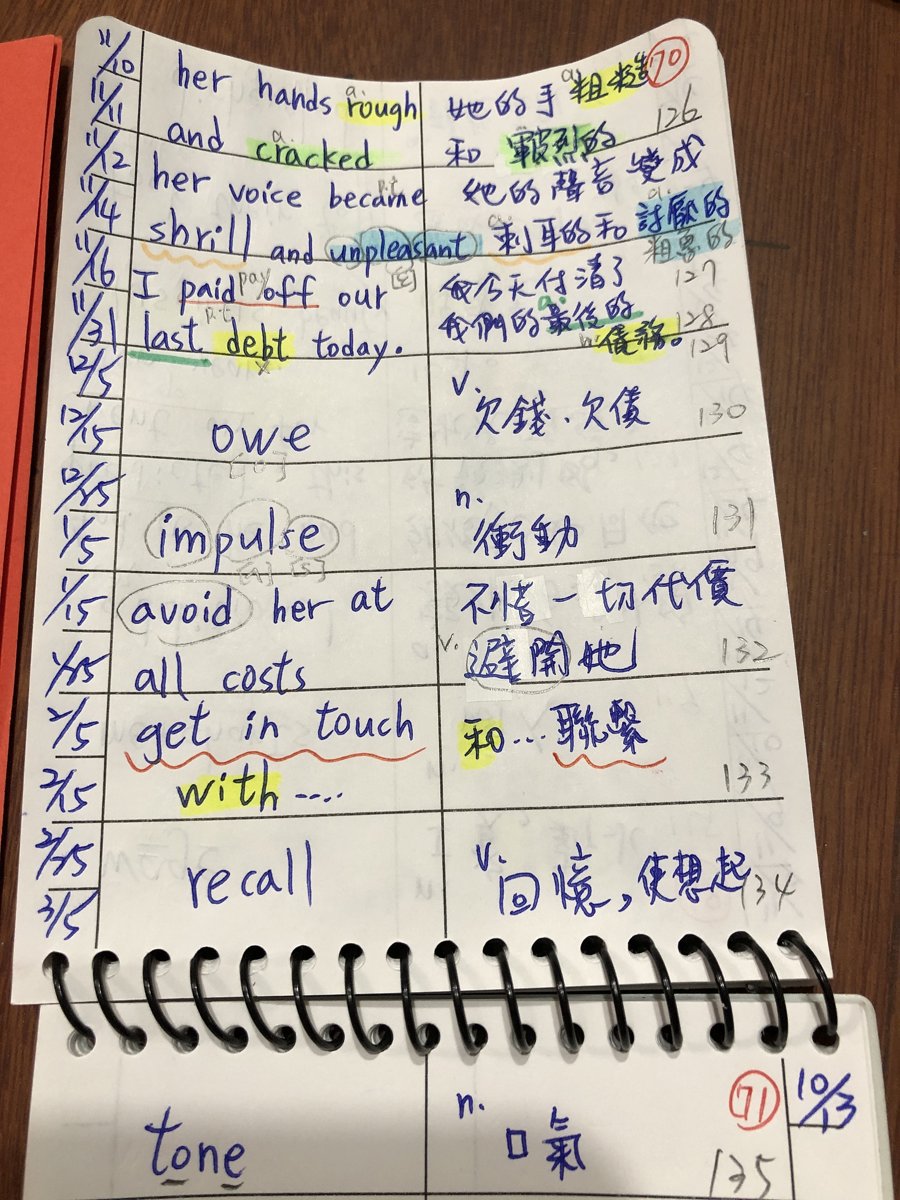 11/10
11/11
11/12
11/14
11/16
11/31
12/5
12/15
12/25
1/5
1/15
1/25
2/5
2/15
2/25
3/5
70
her hands rough 她的手粗糙
a. a.
126
and cracked 和皸烈的
a.
her voice became 她的聲音變成
p.t a.
shrill and unpleasant 刺耳的和討厭的
a. 粗魯的
127
I paid off our 我今天付清了
pay [z]
p.t a.
last debt today. 我們的最後的
128
x n. 債務。
129
v.
owe 欠錢、欠債 130
[o]
n.
impulse 衝動 131
[ʌ] [s]
avoid her at 不惜一切代價
all costs v. 避開她 132
get in touch 和...聯繫
with .... 133
v.
recall 回憶,使想起 134
71
10/13
n.
tone 口氣 135